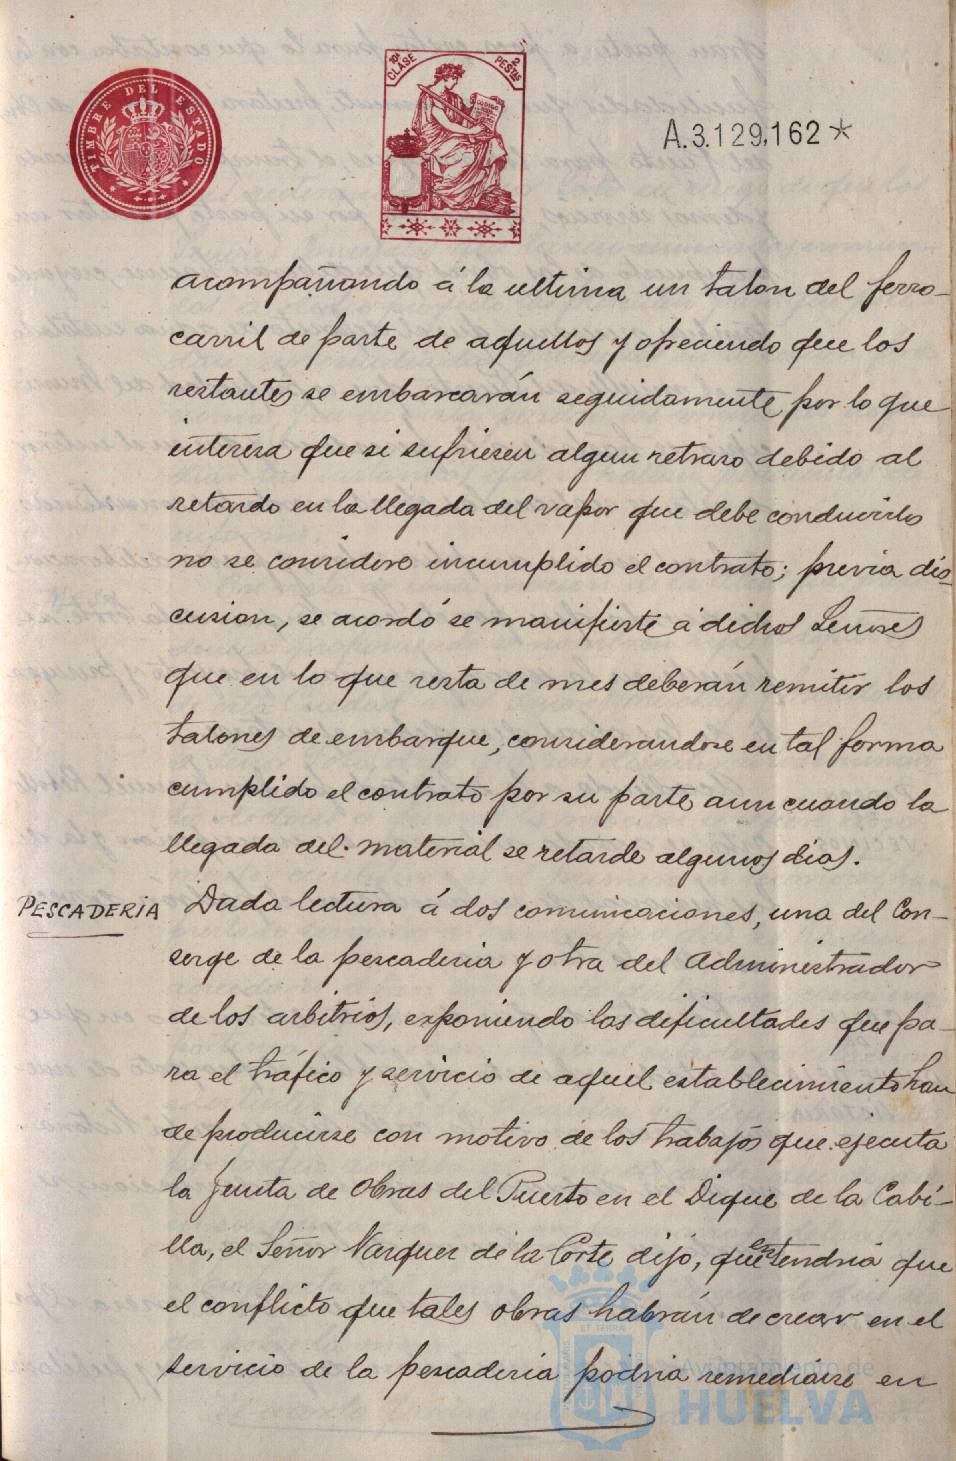 TIMBRE DEL ESTADO
10ª CLASE
2 PESTAS
A.3.129,162*
acompañando á la ultima un talon del ferro-
carril de parte de aquellos y ofreciendo que los
restantes se embarcarán seguidamente por lo que
interesa que si sufriesen algun retraso debido al
retardo en la llegada del vapor que debe conducirlo
no se considere incumplido el contrato; previa dis-
cusion, se acordó se manifieste á dichos Señores
que en lo que resta de mes deberán remitir los
talones de embarque, considerandose en tal forma
cumplido el contrato por su parte aun cuando la
llegada del material se retarde algunos dias.
PESCADERIA
Dada lectura á dos comunicaciones, una del Con-
serge de la pescaderia y otra del Administrador
de los arbitrios, exponiendo las dificultades que pa-
ra el tráfico y servicio de aquel establecimiento han
de producirse con motivo de los trabajos que ejecuta
la Junta de Obras del Puerto en el Dique de la Cabi-
lla, el Señor Vazquez de la Corte dijo, que entendia que
el conflicto que tales obras habrán de crear en el
servicio de la pescaderia podria remediarse en
Ayuntamiento de
HUELVA